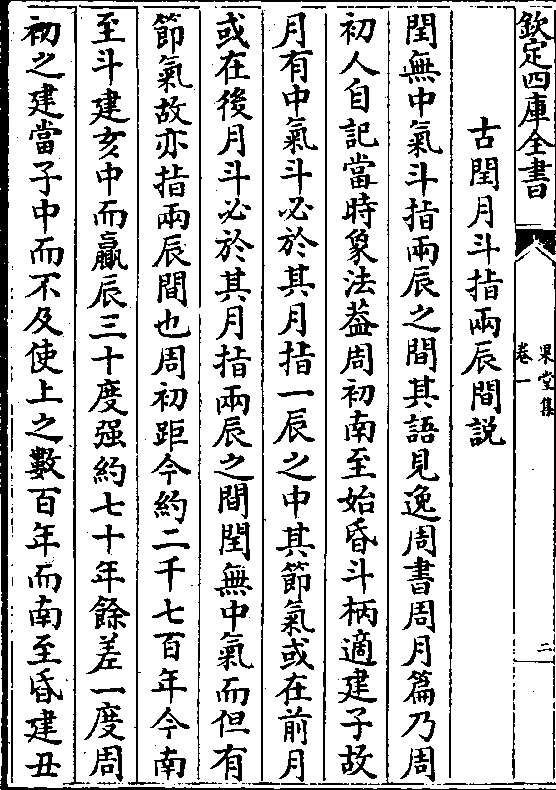 欽定四庫全書
果堂集
卷一
二
古閏月斗指兩辰間説
閏無中氣斗指兩辰之間其語見逸周書周月篇乃周
初人自記當時象法葢周初南至始昏斗柄適建子故
月有中氣斗必於其月指一辰之中其節氣或在前月
或在後月斗必於其月指兩辰之間閏無中氣而但有
節氣故亦指兩辰間也周初距今約二千七百年今南
至斗建亥中而贏辰三十度强約七十年餘差一度周
初之建當子中而不及使上之數百年而南至昏建丑